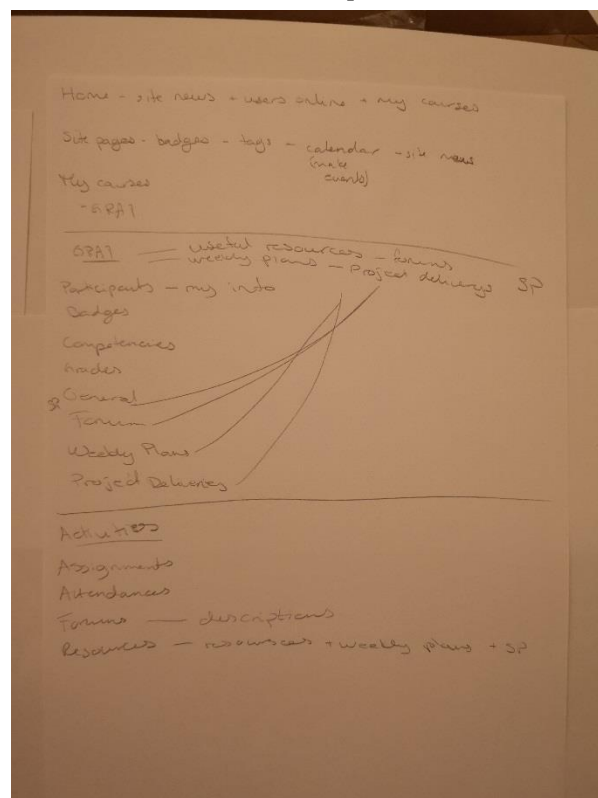 Home - site news + users online + my courses
Site pages - badges - tags - calendar - site news
(make events)
My courses
- GPA1
GPA1 — useful resources - forums
— weekly plans - Project deliverys SP
Participants - my info
Badges
Competencies
Grades
SP General
Forum
Weekly Plans
Project Deliveries
Activities
Assignments
Attendances
Forums — descriptions
Resources — resourses + weekly plans + SP